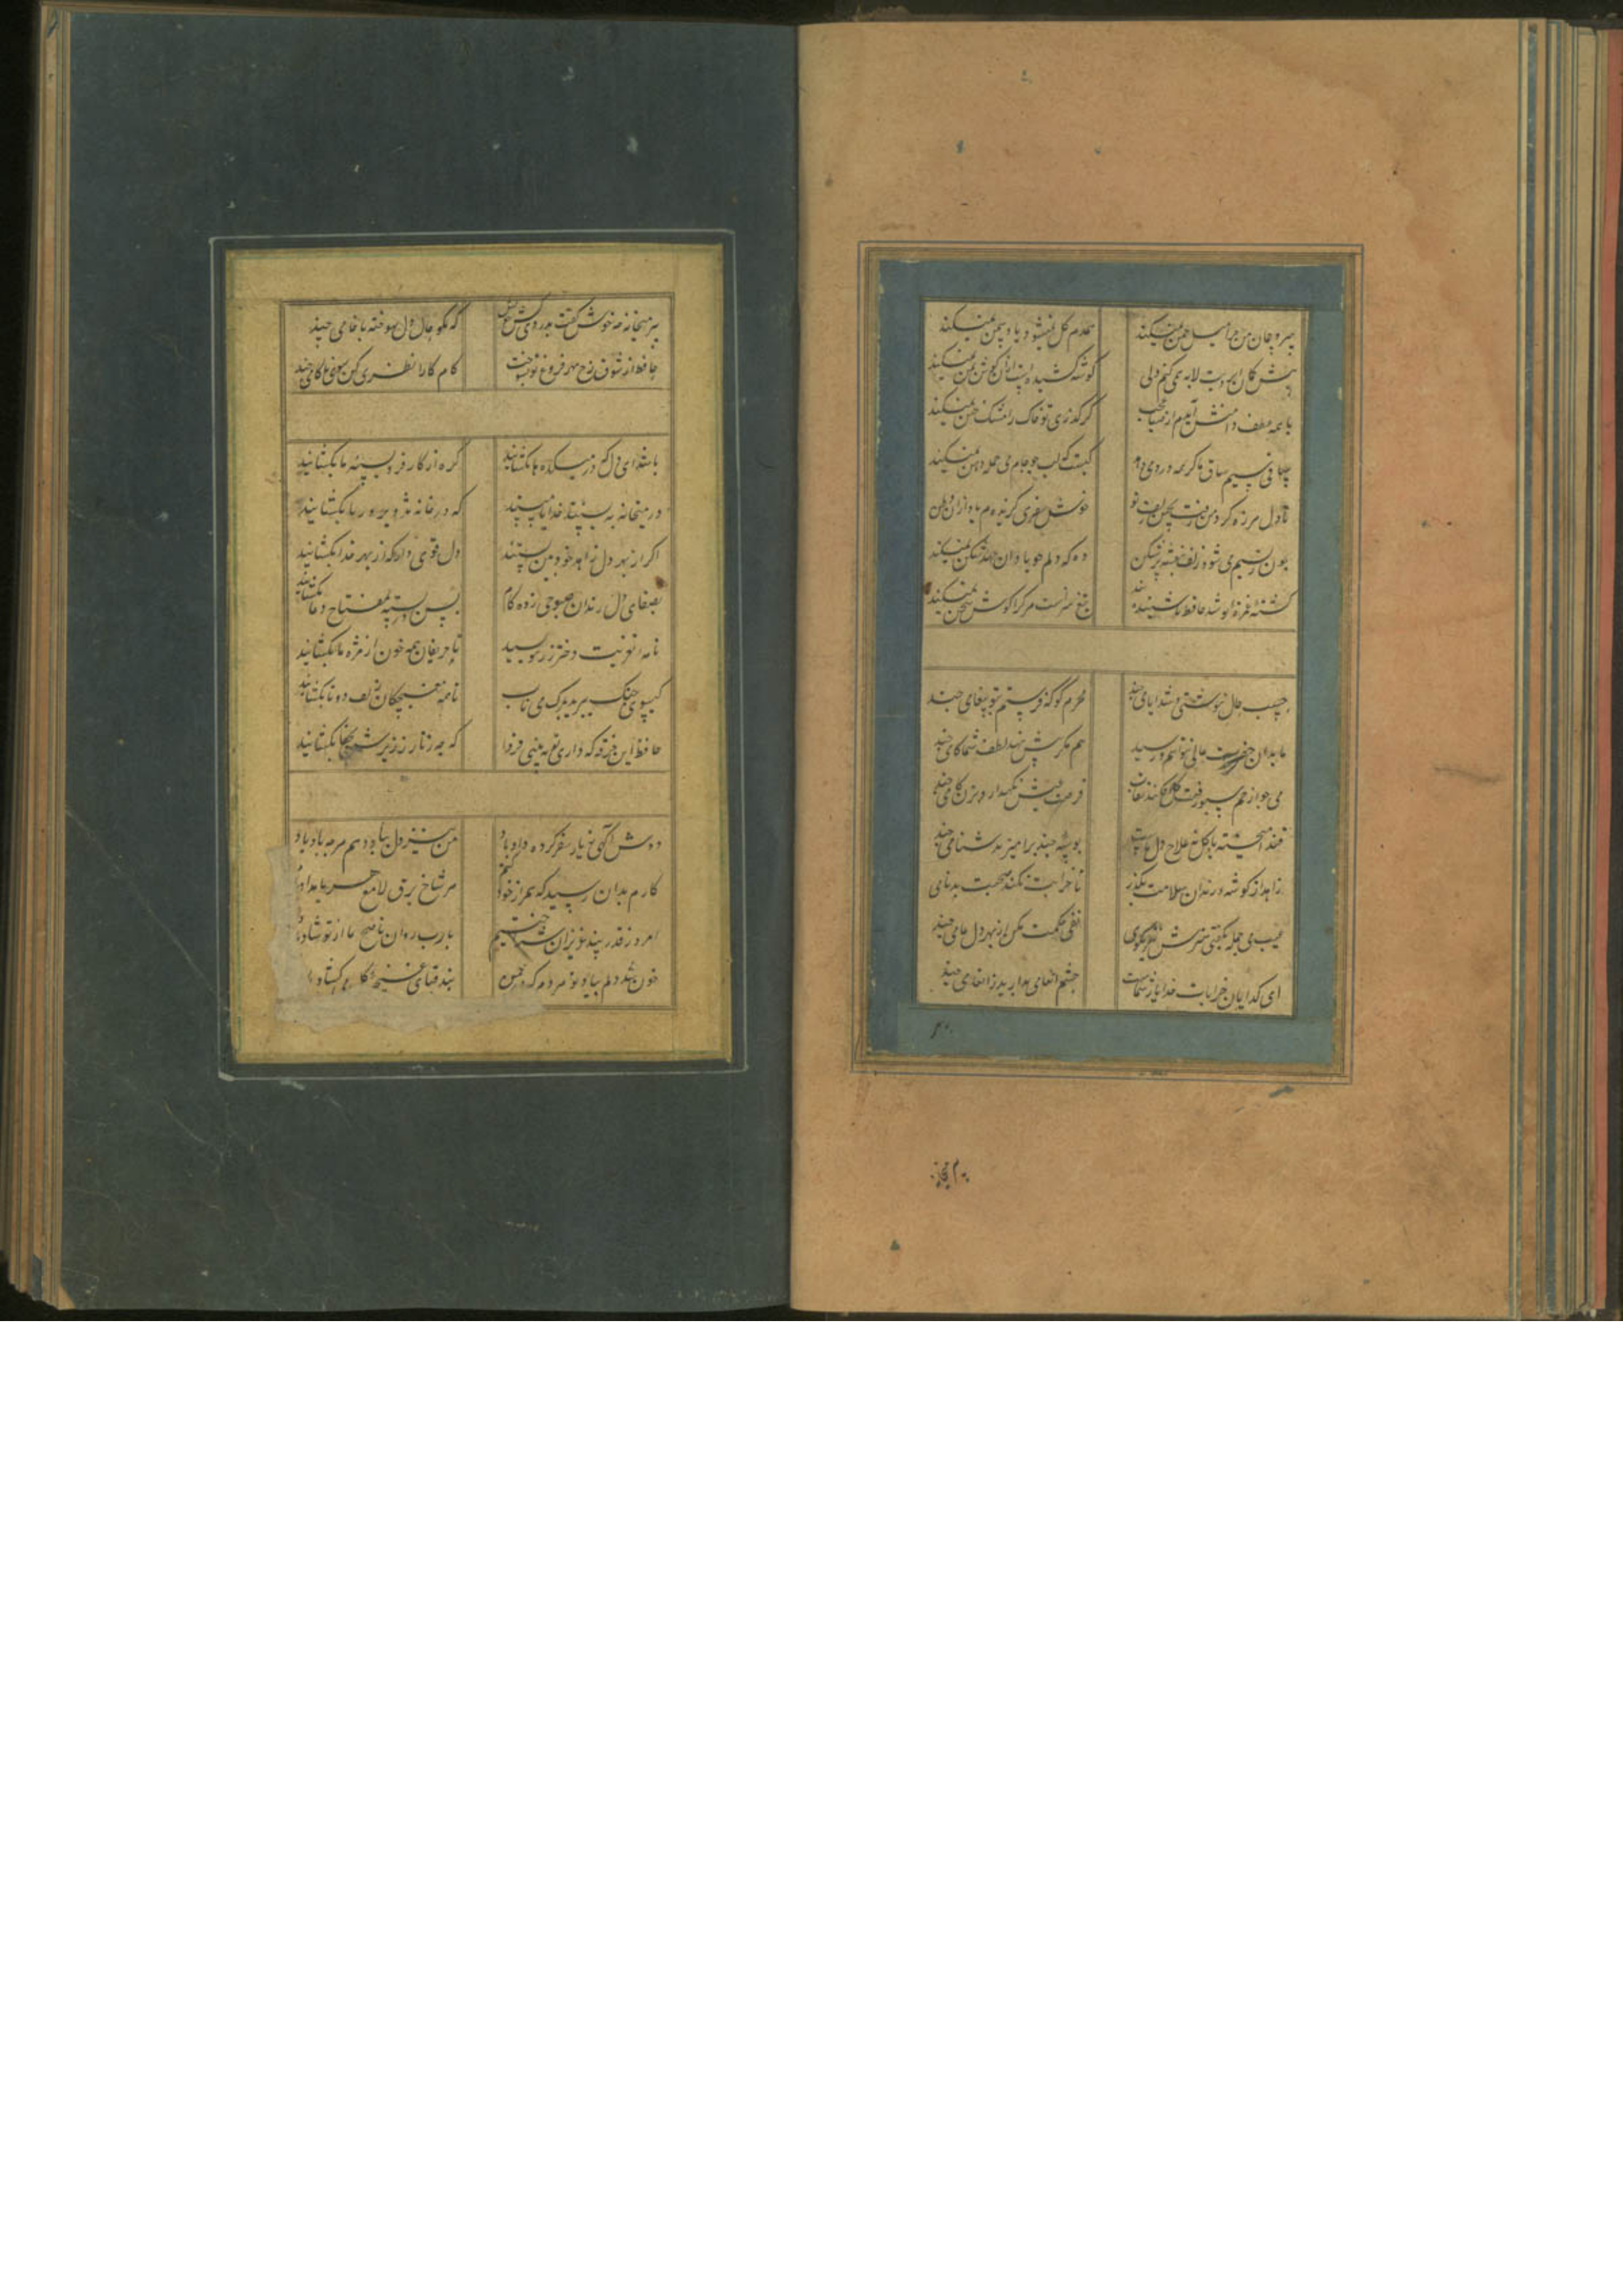 سرو چمان من چرا میل چمن نمیکند همدم گل نمیشود یاد سمن نمیکند
پیش کمان ابرویت لابه همی کنم ولی گوشه کشیده است ازان گوش بمن نمیکند
با همه عطف دامنش آیدم از صبا عجب کز گذری تو خاک را مشک ختن نمیکند
ساقی سیم ساق ما گر همه دردی دهد کیست که لب چو جام می جمله دهن نمیکند
تا دل هرزه گرد من رفت بچین زلف تو
چون ز نسیم می شود زلف بنفشه پرشکن وه که دلم چو یاد ازان عهد شکن نمیکند
کشته غمزه تو شد حافظ ناشنیده پند تیغ سزاست هر کرا گوش سخن نمیکند
حسب حالی ننوشتی و شد ایامی چند محرم کو که فرستم بتو پیغامی چند
ما بدان حضرت عالی نتوانیم رسید هم مگر پیش نهد لطف شما گامی چند
می چو از خم بسبو رفت گل افکند نقاب فرصت عیش نگهدار و بزن کامی چند
قند آمیخته با گل نه علاج دل ماست بوسه چند برآمیز بدشنامی چند
زاهد از گوشه رندان بسلامت بگذر تا خرابت نکند صحبت بدنامی
عیب می جمله بگفتی هنرش نیز بگوی نفی حکمت مکن از بهر دل عامی چند
ای گدایان خرابات خدا یار شماست چشم انعام مدارید ز انعامی چند
پیر میخانه چه خوش گفت بدردی کش خویش که مگو حال دل سوخته با خامی چند
حافظ از شوق رخ مهر فروغ تو بسوخت کام کارا نظری کن سوی ناکامی چند
باشد ای دل که در میکده ها بگشایند گره از کار فروبسته ما بگشایند
در میخانه ببستند خدایا مپسند که در خانه تزویر و ریا بگشایند
اگر از بهر دل زاهد خودبین بستند دل قوی دار که از بهر خدا بگشایند
بصفای دل رندان صبوحی زدگان بس در بسته بمفتاح دعا بگشایند
نامه تعزیت دختر رز بنویسید تا حریفان همه خون از مژه ها بگشایند
گیسوی چنگ ببرید بمرگ می ناب تا همه مغبچگان زلف دوتا بگشایند
حافظ این خرقه که داری تو ببینی فردا که چه زنار ز زیرش بجفا بگشایند
دوش آگهی ز یار سفر کرده داد باد من نیز دل بباد دهم هرچه باد باد
کارم بدان رسید که همراز خود کنم هر شام برق لامع و هر بامداد باد
امروز قدر پند عزیزان شناختیم یارب روان ناصح ما از تو شاد باد
خون شد دلم بیاد تو هر دم که در چمن بند قبای غنچه گل می گشاد باد